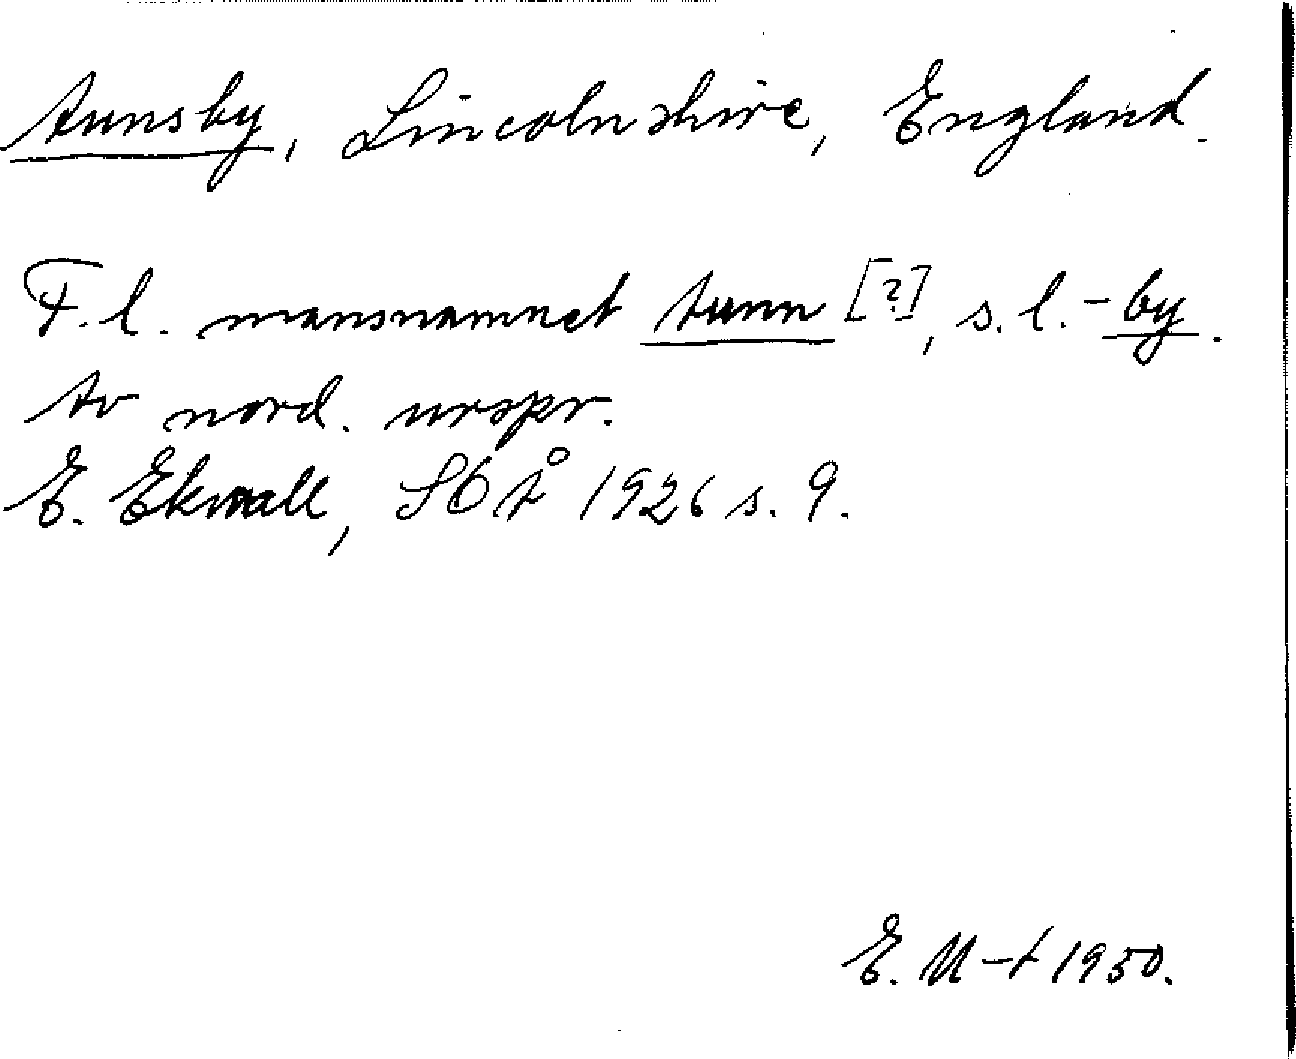 Aunsby, Lincolnshire, England.
F.l. mansnamnet Aunn [?], s.l. -by.
Av nord. urspr.
E. Ekwall, SOÅ 1926 s. 9.
E. 1950.